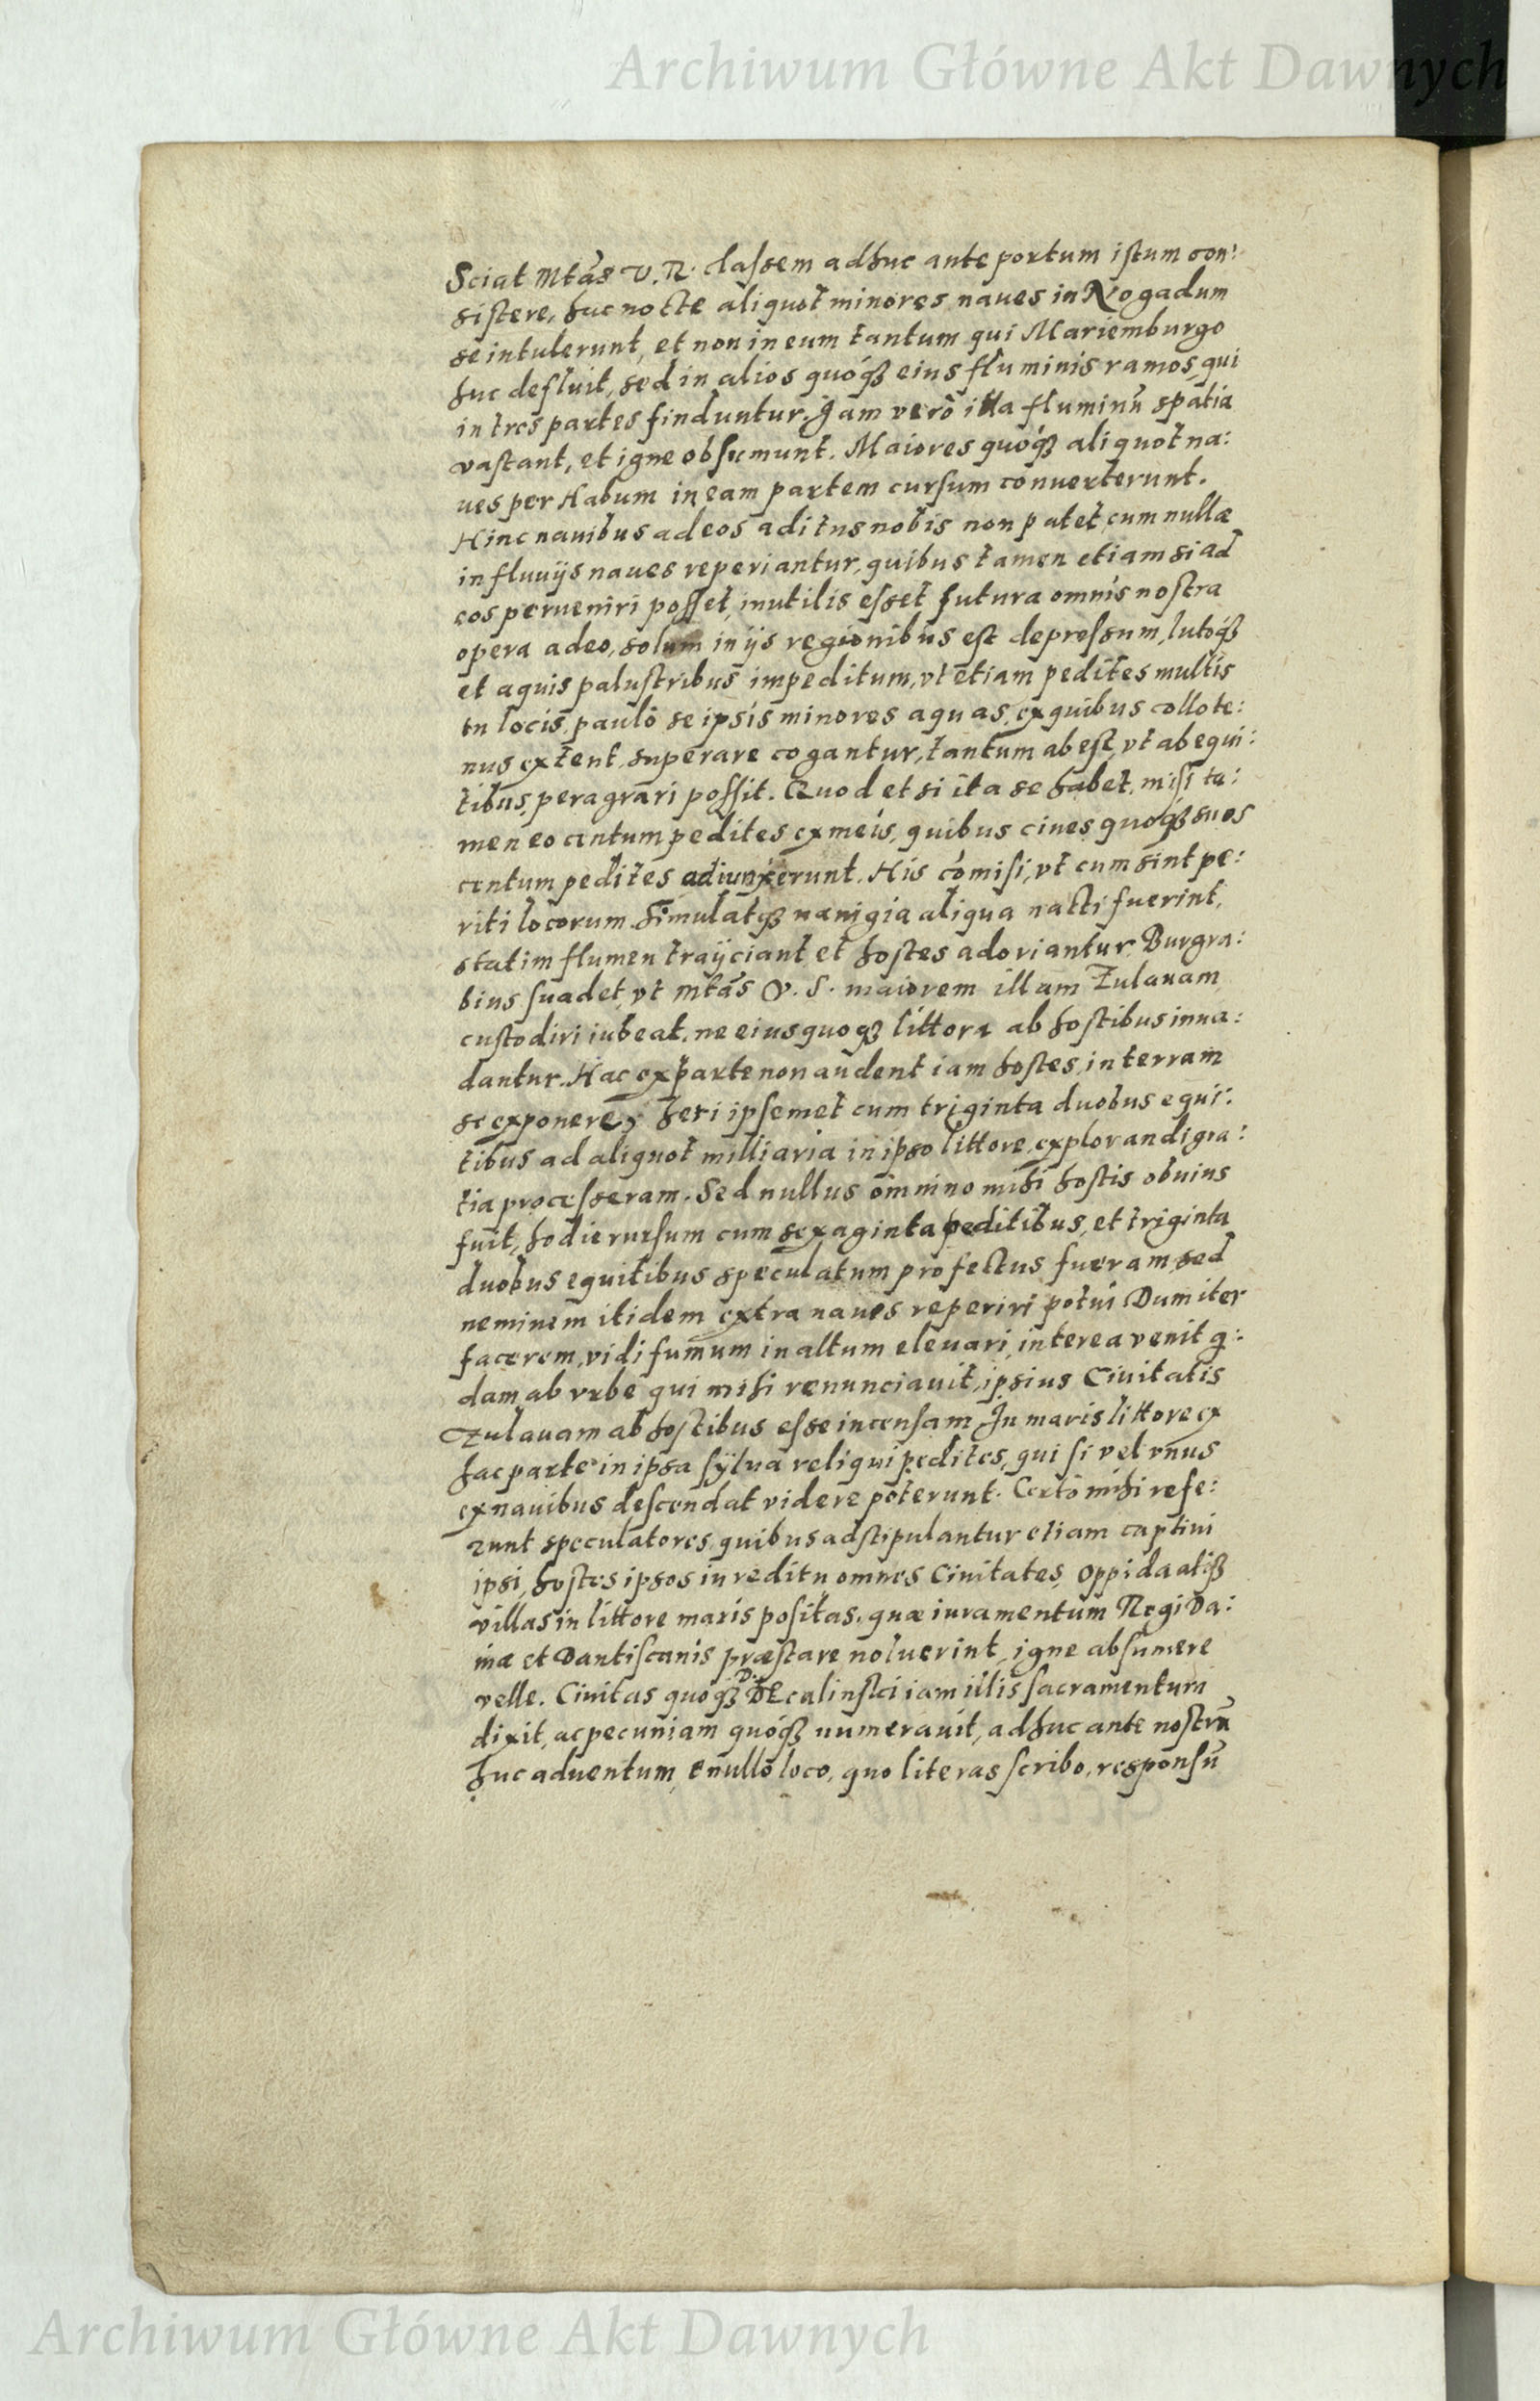 Archiwum Główne Akt Dawnych
Sciat Mtas V. R. classem adhuc ante portum istum con:
sistere, hac nocte aliquot minores naues in Nogadum
se intulerunt, et non in eum tantum qui Mariemburgo
huc defluit, sed in alios quóqꝫ eius fluminis ramos, qui
in tres partes finduntur. Jam verò illa fluminū spatia
vastant, et igne absumunt. Maiores quóqꝫ aliquot na:
ues per Habum in eam partem cursum conuerterunt.
Hinc nauibus ad eos aditus nobis non patet, cum nullæ
in fluuijs naues reperiantur, quibus tamen etiam si ad
eos perueniri posset, inutilis esset futura omnis nostra
opera adeo, solum in ijs regionibus est depressum, lutoqꝫ
et aquis palustribus impeditum, vt etiam pedites multis
in locis, paulò se ipsis minores aquas, ex quibus collote:
nus extent, superare cogantur, tantum abest, vt ab equi:
tibus, peragrari possit. Quod etsi ita se habet, misi ta:
men eo centum pedites ex meis, quibus ciues quoqꝫ suos
centum pedites adiunxerunt. His cōmisi, vt cum sint pe:
riti locorum simulatqꝫ nauigia aliqua nacti fuerint,
statim flumen traijciant et hostes adoriantur. Burgra:
bius suadet, vt Mtas V. S. maiorem illam Zulauam
custodiri iubeat, ne eius quoqꝫ littora ab hostibus inua:
dantur. Hac ex parte non audent iam hostes, in terram
se exponere, heri ipsemet cum triginta duobus equi:
tibus ad aliquot milliaria in ipso littore, explorandi gra:
tia processeram. Sed nullus omnino mihi hostis obuius
fuit, hodie rursum cum sexaginta peditibus, et triginta
duobus equitibus speculatum profectus fueram, sed
neminem itidem extra naues reperiri potui Dum iter
facerem, vidi fumum in altum eleuari, interea venit q:
dam ab vrbe qui mihi renunciauit, ipsius Ciuitatis
Zulauam ab hostibus esse incensam. In maris littore ex
hac parte in ipsa sylua reliqui pedites, qui si vel vnus
ex nauibus descendat videre poterunt. Certò mihi refe:
runt speculatores, quibus adstipulantur etiam captiui
ipsi, hostes ipsos in reditu omnes Ciuitates, oppida atqꝫ
villas in littore maris positas, quæ iuramentum Regi Da:
niæ et Dantiscanis præstare noluerint, igne absumere
velle. Ciuitas quóqꝫ iam illis sacramentum
dixit, ac pecuniam quóqꝫ numerauit, adhuc ante nostrū
huc aduentum, E nullo loco, quo literas scribo, responsū
Archiwum Główne Akt Dawnych